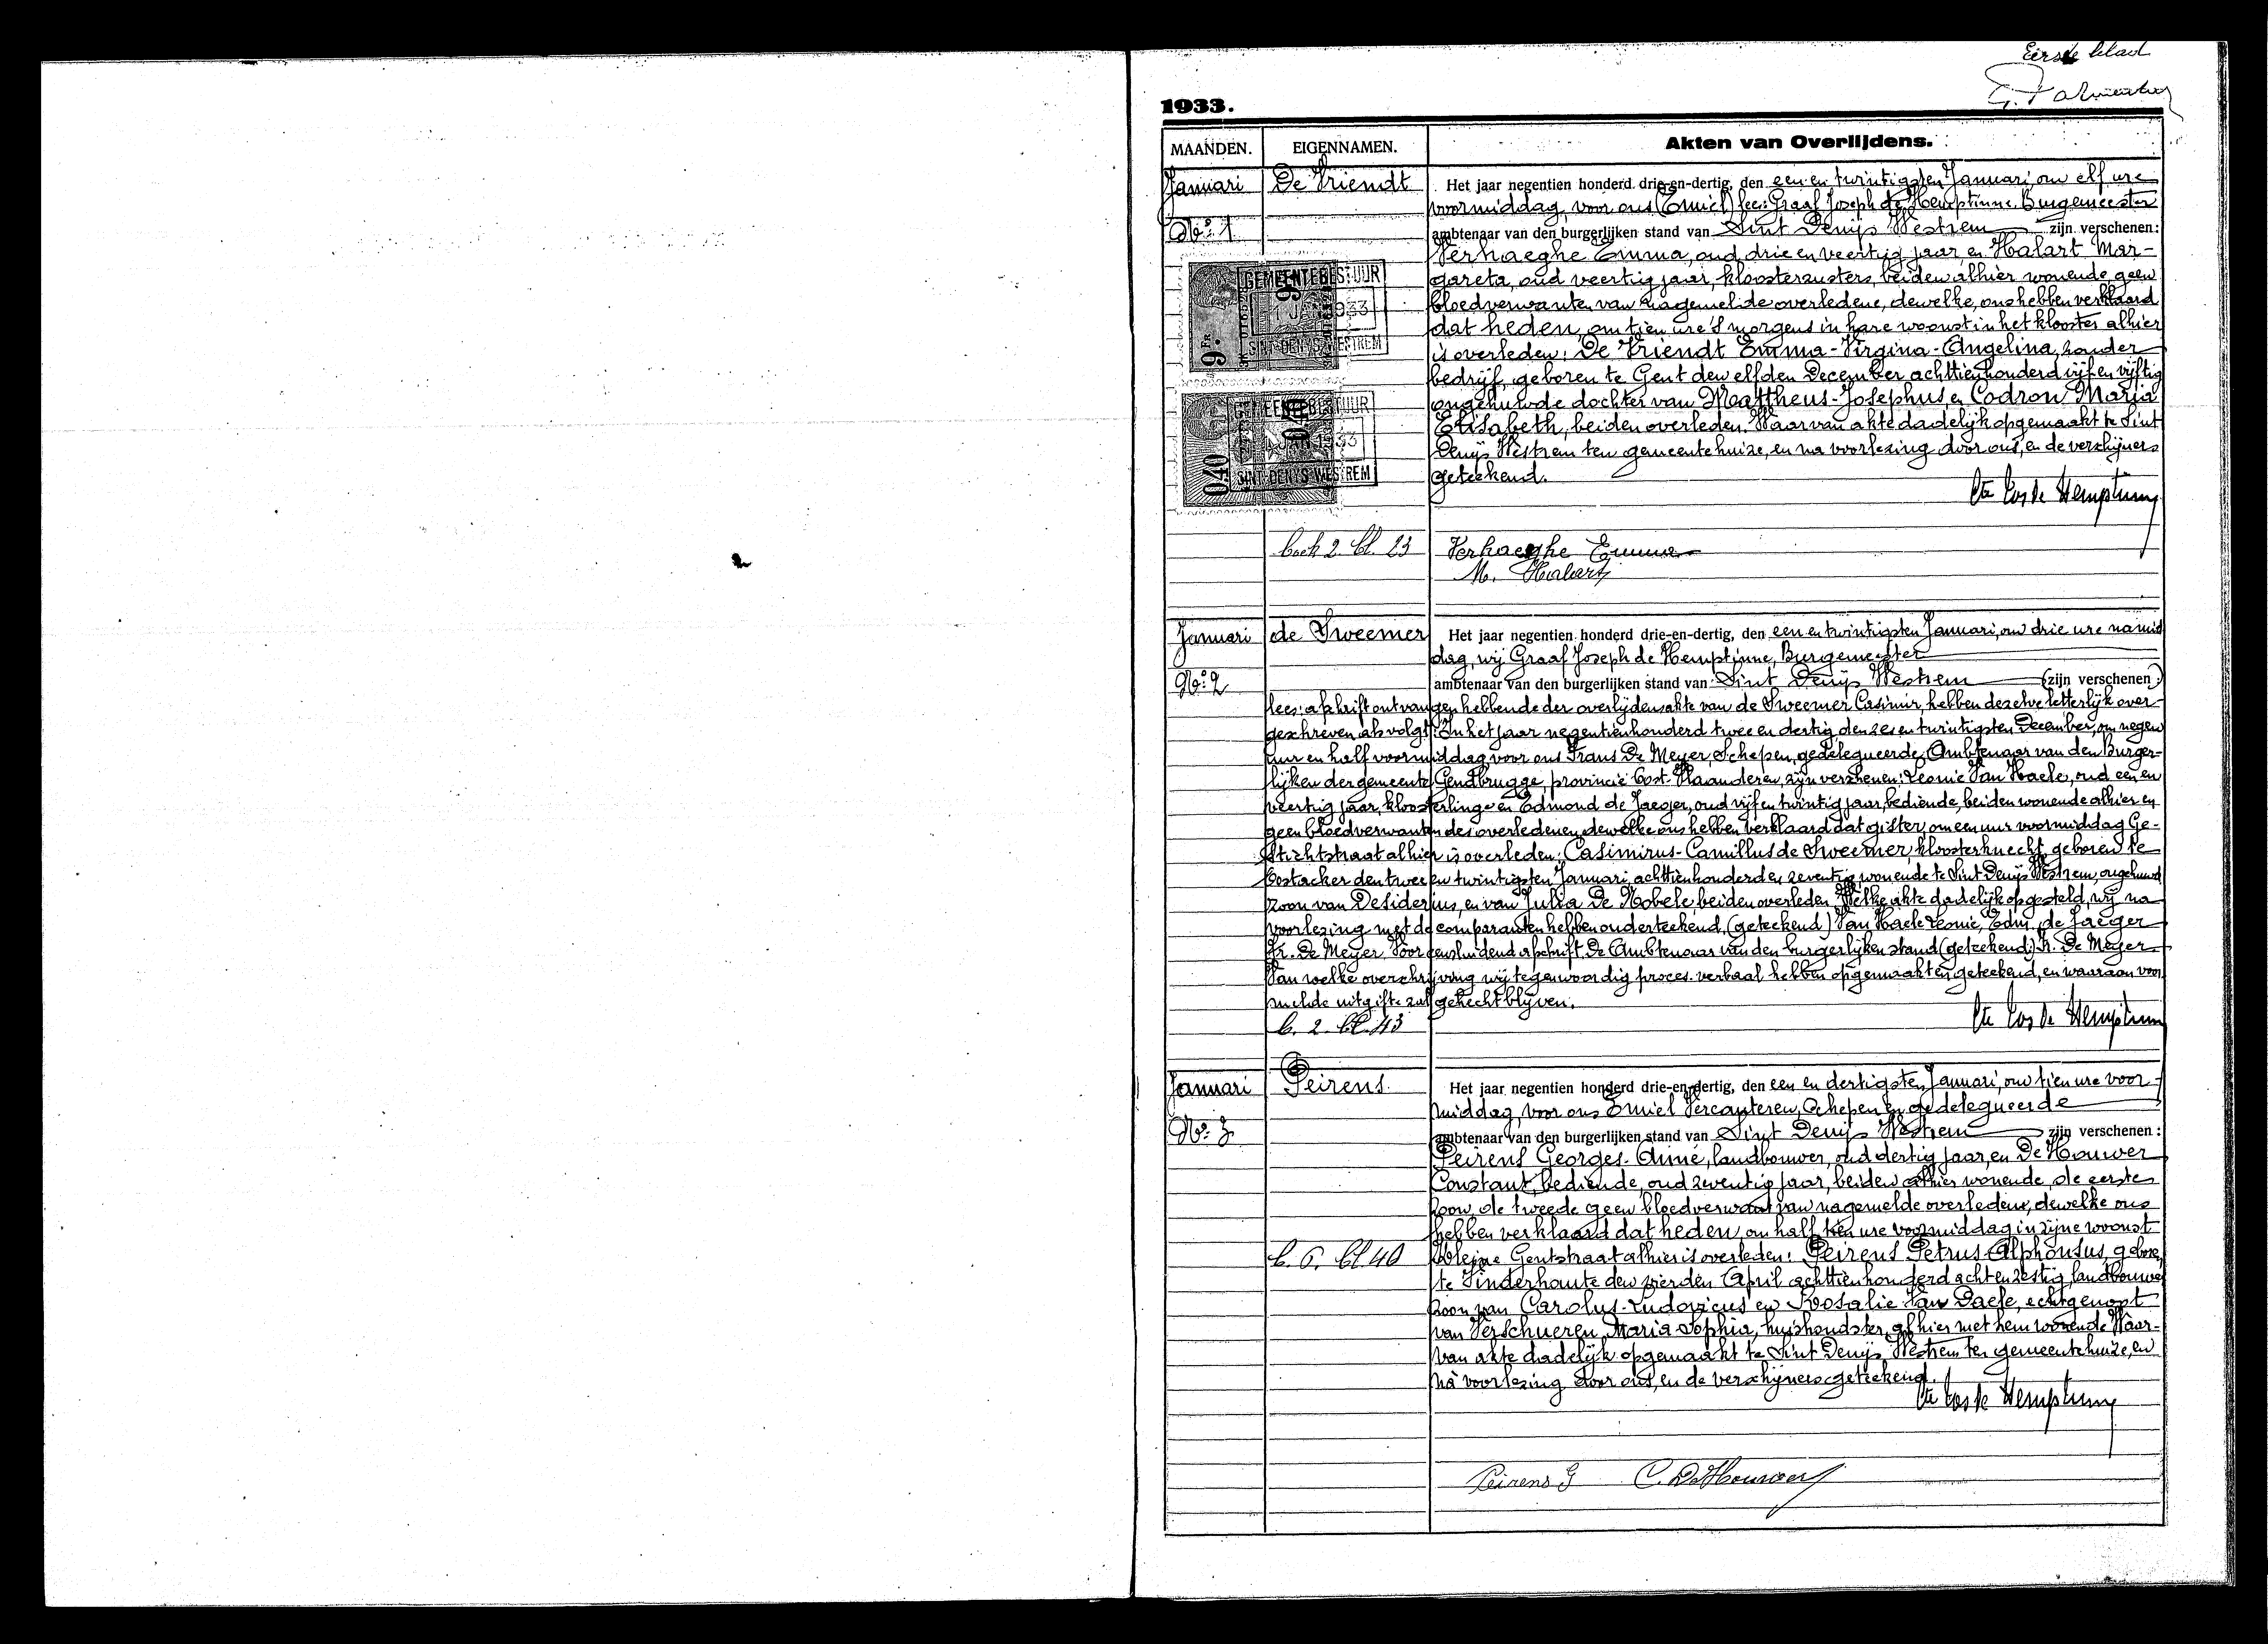 Eerste blad
1933.
MAANDEN. EIGENNAMEN. Akten van Overlijdens.
Januari De Vriendt Het jaar negentien honderd drie-en-dertig, den een en twintigsten Januari, om elf ure
voormiddag, voor ons (Emiel) lees: Graaf Joseph de Hemptinne, Burgemeester
No. 1 ambtenaar van den burgerlijken stand van Sint Denijs Westrem zijn verschenen:
Verhaeghe Emma, oud drie en veertig jaar, en Halart Mar-
gareta, oud veertig jaar, kloosterzusters, beiden alhier wonende geen
bloedverwanten van nagemelde overledene, dewelke, ons hebben verklaard
dat heden, om tien ure 's morgens in hare woonst in het klooster alhier
is overleden: De Vriendt Emma-Virgina-Angelina, zonder
bedrijf, geboren te Gent den elfden December achttienhonderd vijf en vijftig
ongehuwde dochter van Mattheus-Josephus en Codron Maria
Elisabeth, beiden overleden. Waarvan akte dadelijk opgemaakt te Sint
Denijs Westrem ten gemeentehuize, en na voorlezing door ons, en de verschijners
geteekend.
GEMEENTEBESTUUR
9 FR
SINT-DENYS-WESTREM
GEMEENTEBESTUUR
0.40
SINT-DENYS-WESTREM
boek 2. bl. 23 Verhaeghe Emma
M. Halart
Januari de Sweemer Het jaar negentien honderd drie-en-dertig, den een en twintigsten Januari, om drie ure namid
dag, wij Graaf Joseph de Hemptinne, Burgemeester
No. 2 ambtenaar van den burgerlijken stand van Sint Denijs Westrem (zijn verschenen:)
lees: afschrift ontvangen hebbende der overlijdensakte van de Sweemer Casimir, hebben dezelve letterlijk over-
geschreven als volgt: In het jaar negentienhonderd twee en dertig, den zes en twintigsten December, om negen
uur en half voormiddag voor ons Frans De Meyer, Schepen, gedelegueerde Ambtenaar van den Burger-
lijken der gemeente Gendbrugge, provincie Oost-Vlaanderen, zijn verschenen: Leonie Van Haele, oud een en
veertig jaar, kloosterlinge en Edmond de Jaeger, oud vijf en twintig jaar, bediende, beiden wonende alhier en
geen bloedverwanten des overledenen, dewelke ons hebben verklaard dat gister, om een uur voormiddag Ge-
stichtstraat alhier is overleden: Casimirus-Camillus de Sweemer, kloosterknecht, geboren te
Oostacker den twee en twintigsten Januari achttienhonderd en zeventig, wonende te Sint Denijs Westrem, ongehuwd
zoon van Desiderius, en van Julia De Nobele, beiden overleden. Welke akte dadelijk opgesteld, wij na
voorlezing met de comparanten hebben onderteekend, (geteekend) Van Haele Leonie, Edm. de Jaeger
Fr. De Meyer. Voor eensluidend afschrift De Ambtenaar van den burgerlijken stand (geteekend:) Fr. De Meyer
Van welke overschrijving wij tegenwoordig proces-verbaal hebben opgemaakt en geteekend, en waaraan voor
melde uitgifte zal gehecht blijven.
b. 2. bl. 43
Januari Peirens Het jaar negentien honderd drie-en-dertig, den een en dertigsten Januari, om tien ure voor-
middag, voor ons Emiel Vercauteren, Schepen en gedelegueerde
No. 3 ambtenaar van den burgerlijken stand van Sint Denijs Westrem zijn verschenen:
Peirens Georges-Aimé, landbouwer, oud dertig jaar, en De Houwer
Constant, bediende, oud zeventig jaar, beiden alhier wonende, de eerste
zoon, de tweede geen bloedverwant van nagemelde overledene, dewelke ons
hebben verklaard dat heden, om half tien ure voormiddag in zijne woonst
b. 6. bl. 40 Kleine Gentstraat alhier is overleden: Peirens Petrus-Alphonsus, gebore,
te Vinderhoute den vierden April achttienhonderd acht en zestig, landbouwer
zoon van Carolus-Ludovicus en Rosalie Van Daele, echtgenoot
van Verschueren Maria-Sophia, huishoudster, alhier met hem wonende. Waar-
van akte dadelijk opgemaakt te Sint Denijs Westrem ten gemeentehuize, en
na voorlezing door ons, en de verschijners geteekend.
Peirens G C. De Houwer